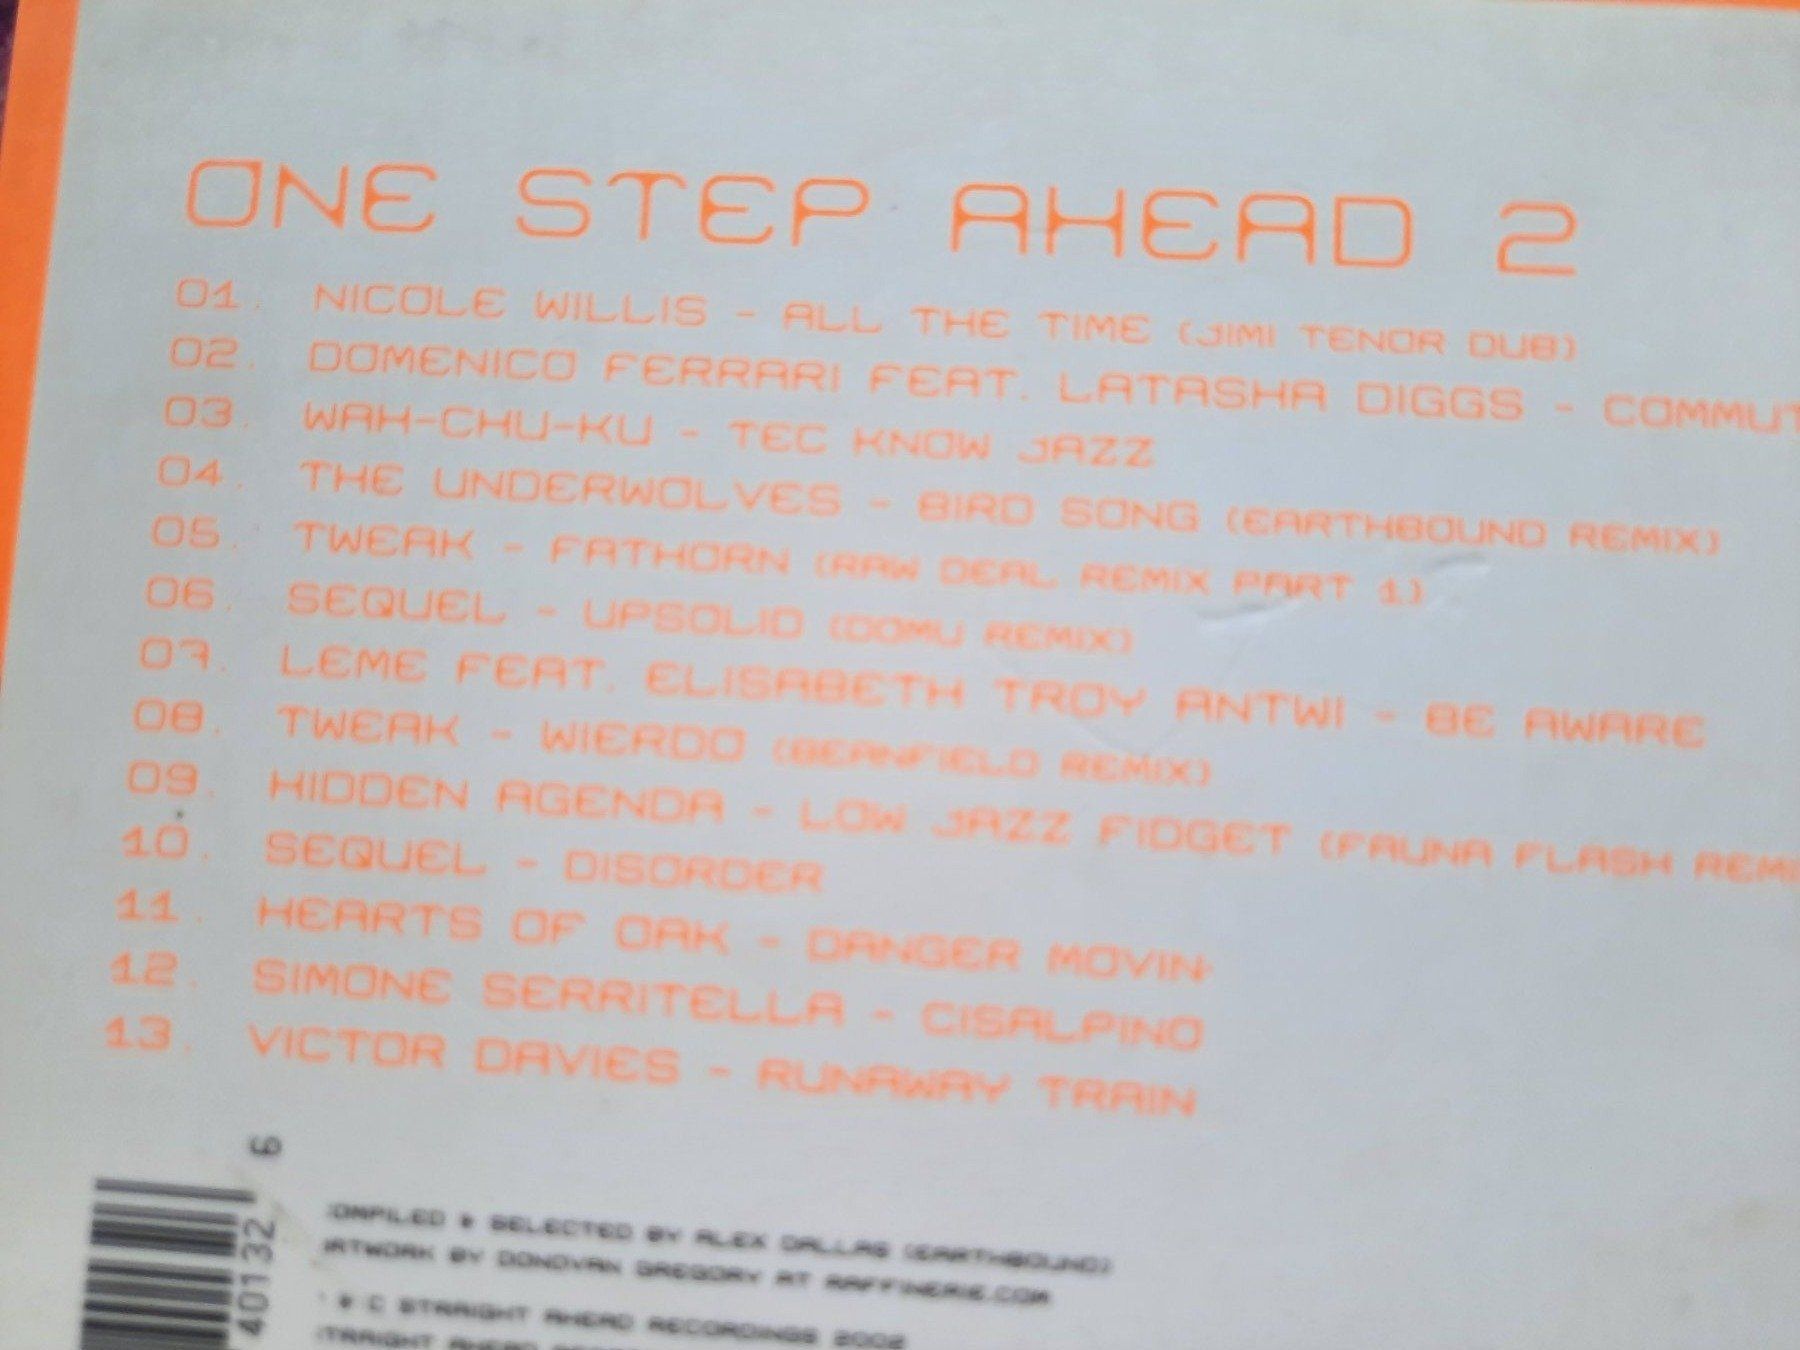 ONE STEP AHEAD 2
01. NICOLE WILLIS - ALL THE TIME (JIMI TENOR DUB)
02. DOMENICO FERRARI FEAT. LATASHA DIGGS - COMMUT
03. WAH-CHU-KU - TEC KNOW JAZZ
04. THE UNDERWOLVES - BIRD SONG (EARTHBOUND REMIX)
05. TWEAK - FATHORN (RAW DEAL REMIX PART 1)
06. SEQUEL - UPSOLID (DOMU REMIX)
07. LEME FEAT. ELISABETH TROY ANTWI - BE AWARE
08. TWEAK - WIERDO (BEANFIELD REMIX)
09. HIDDEN AGENDA - LOW JAZZ FIDGET (FAUNA FLASH REMI
10. SEQUEL - DISORDER
11. HEARTS OF OAK - DANGER MOVIN'
12. SIMONE SERRITELLA - CISALPINO
13. VICTOR DAVIES - RUNAWAY TRAIN
40132 6
COMPILED & SELECTED BY ALEX DALLAS (EARTHBOUND)
ARTWORK BY DONOVAN GREGORY AT RAFFINERIE.COM
& C STRAIGHT AHEAD RECORDINGS 2002
STRAIGHT AHEAD